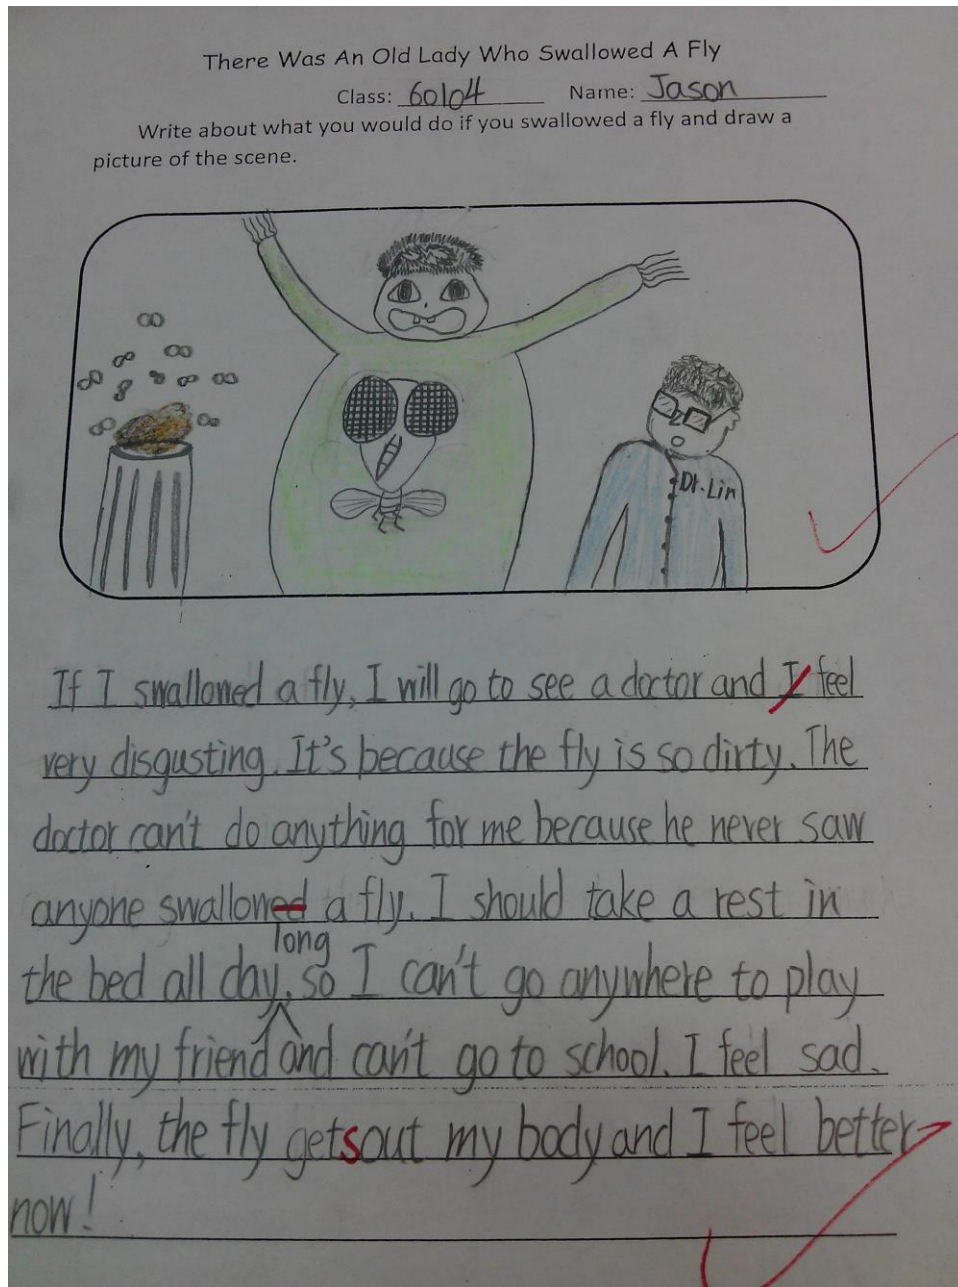 There Was An Old Lady Who Swallowed A Fly
Class: 60104 Name: Jason
Write about what you would do if you swallowed a fly and draw a
picture of the scene.
Dr. Lin
If I swallowed a fly, I will go to see a doctor and I feel
very disgusting. It's because the fly is so dirty. The
doctor can't do anything for me because he never saw
anyone swallowed a fly. I should take a rest in
long
the bed all day, so I can't go anywhere to play
with my friend and can't go to school. I feel sad.
Finally, the fly gets out my body and I feel better
now!